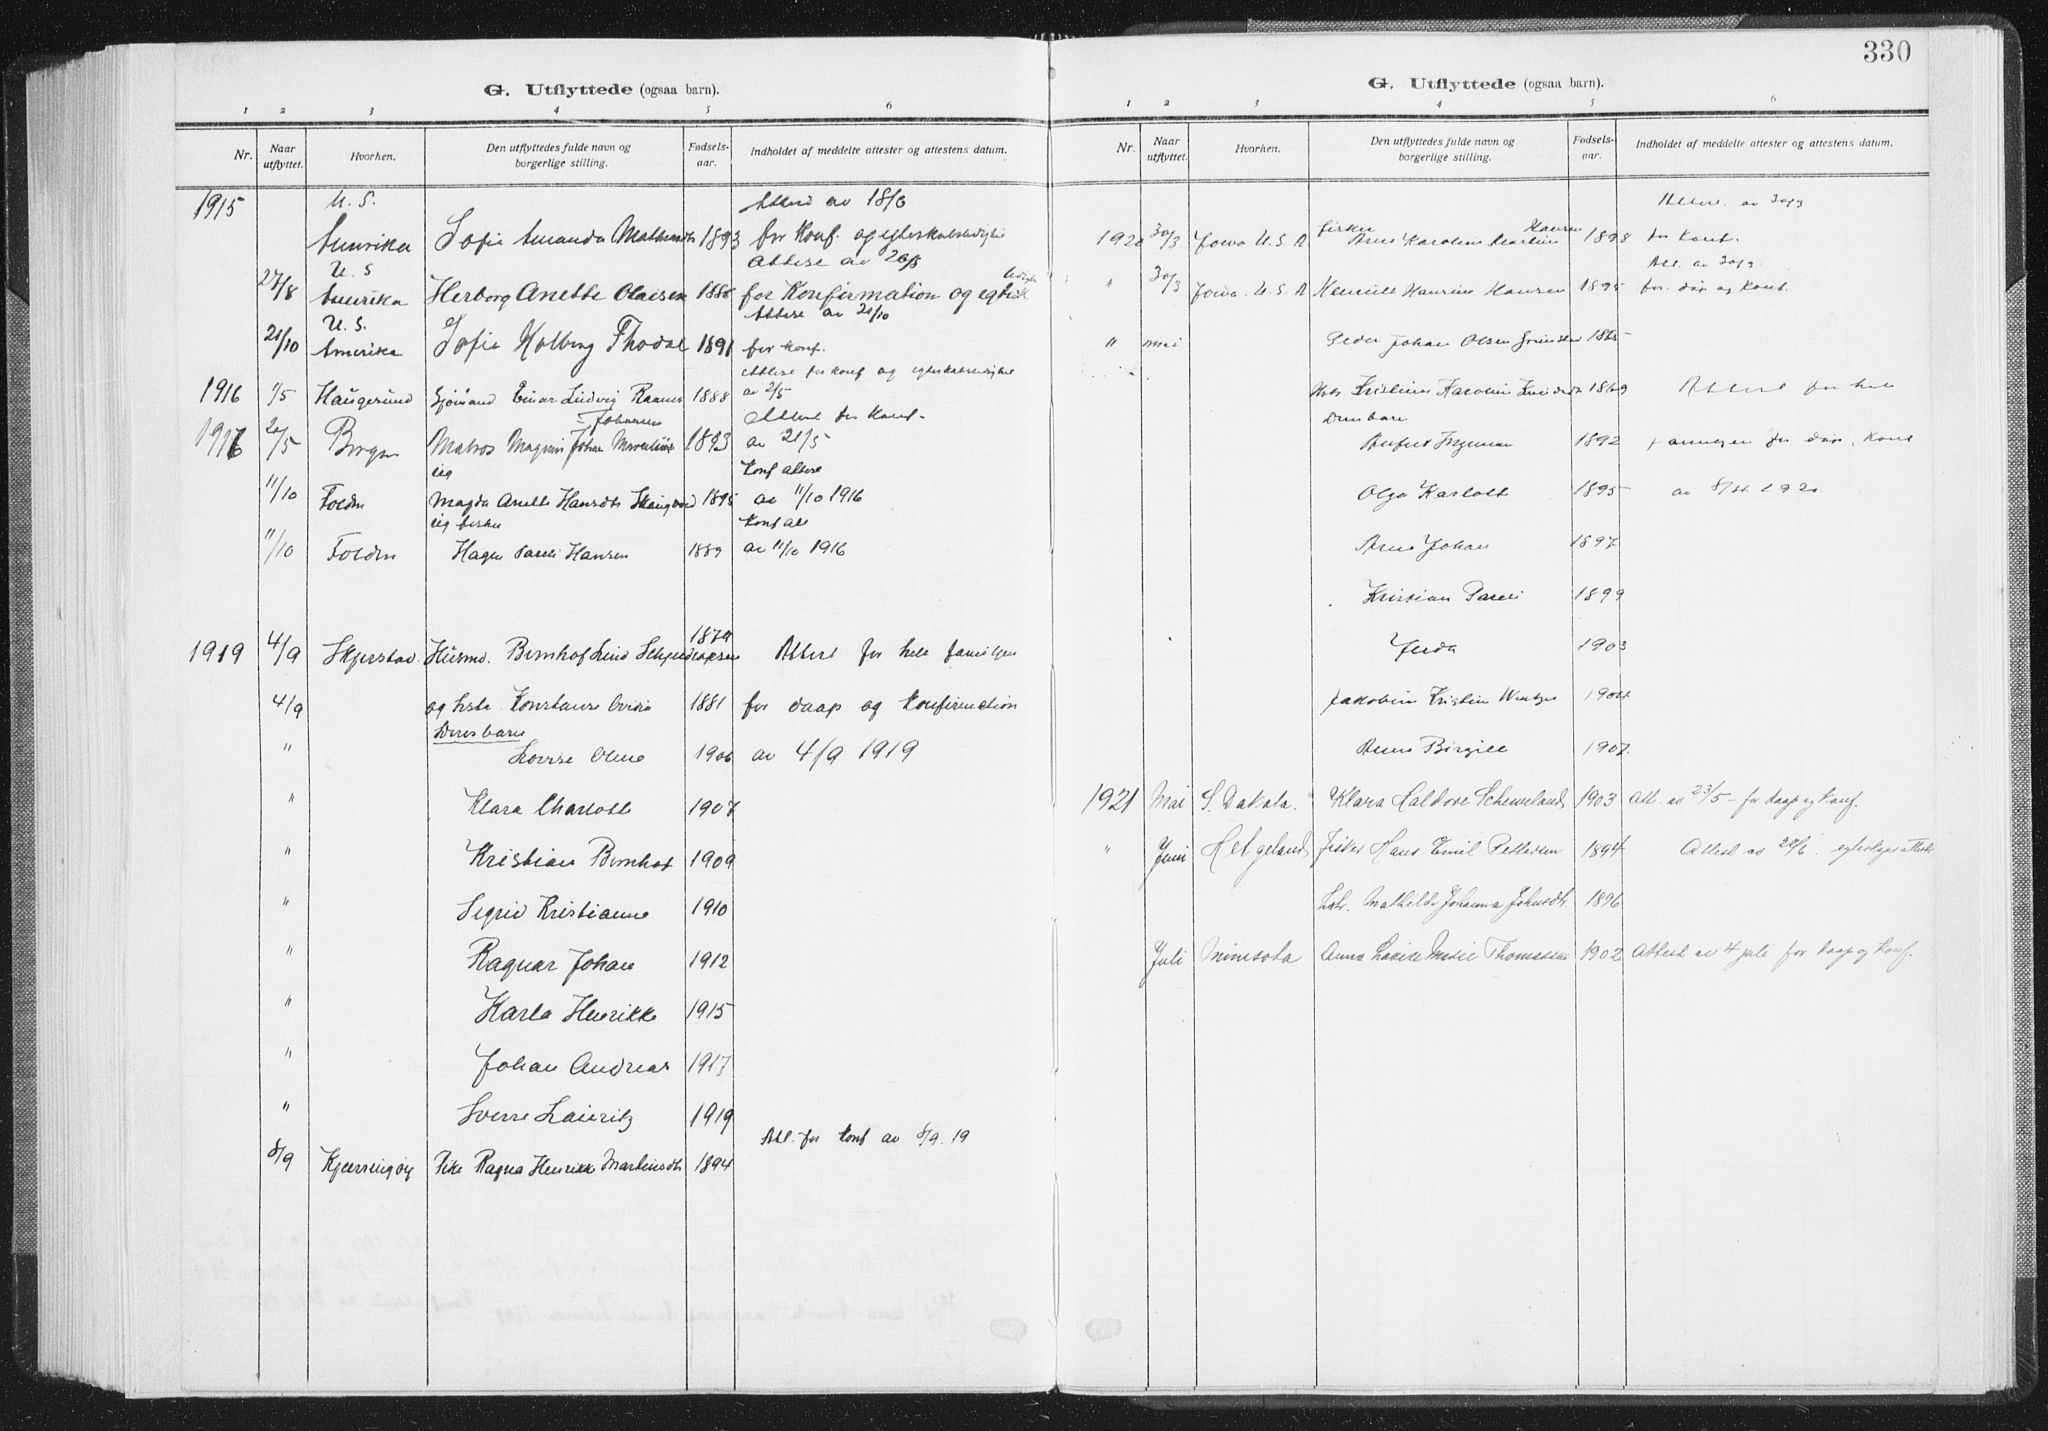 G. Utflyttede (ogsaa barn).
1 2 3 4 5 6
Nr. Naar utflyttet. Hvorhen. Den utflyttedes fulde navn og borgerlige stilling. Fødsels-aar. Indholdet af meddelte attester og attestens datum.
1915 U. S. Attest av 18/6
Amerika Sofie Amanda 1893 for Konf. og
U. S Attest av 26/8
27/8 Amerika Herborg Anette Olaisen 1888 for Konfirmation og
U. S. Attest av 21/10
21/10 Amerika Sofie Holberg Thodal 1891 for konf.
Attest for konf og
1916 1/5 Haugesund Sjømand Einar Ludvig 1888 av 2/5
Johansen Attest for Konf.
1916 20/5 Bergen Matros Magnus Johan 1893 av 21/5
pig Konf attest
11/10 Folden Magda Anette Hansdtr 1895 av 11/10 1916
Konf att
11/10 Folden Hagen Pareli Hansen 1889 av 11/10 1916
1879
1919 4/9 Skjerstad Husmd. Bernhof Attest for hele familjen
4/9 og hstr. Konstanse Ovidia 1881 for daap og Konfirmation
Deres barn
" Lovise Oline 1906 av 4/9 1919
" Klara Charlotte 1907
" Kristian Bernhof 1909
" Sigrid Kristianne 1910
" Ragnar Johan 1912
" Karla Henrikke 1915
" Johan Andreas 1917
" Sverre Lauritz 1919
Att. for konf av 8/9. 19
8/9 Kjerringøy Pike Ragna Henrikke Martinsdtr 1894
330
G. Utflyttede (ogsaa barn).
1 2 3 4 5 6
Nr. Naar utflyttet. Hvorhen. Den utflyttedes fulde navn og borgerlige stilling. Fødsels-aar. Indholdet af meddelte attester og attestens datum.
Attest. av 30/3
Hansen
1920 30/3 Jowa U. S. A Karoline 1898 for Konf.
Att. av 30/3
" 30/3 Jowa. U. S. A Hansine Hansen 1895 for daap og Konf.
" mai Peder Johan Olsen 1865
Kristine Karoline 1869 Attest for hele
Deres barn
Ingeman 1892 for daap, Konf
Olga Karlotte 1895 av 8/ 1920
Arne Johan 1897
Kristian Pareli 1899
1903
Jakobine Kristine 1904
Birgitte 1907.
1921 Mai S. Dakota. Klara Haldore 1903 Att. av 23/5 - for daap og Konf.
" Juni Helgeland Fisker Hans Emil Pettersen 1894 Attest av
Mathilde Johanna Johnsdtr. 1896
Juli Minesota Anna Marie Thomassen 1902 Attest av 4 juli for daap og Konf.